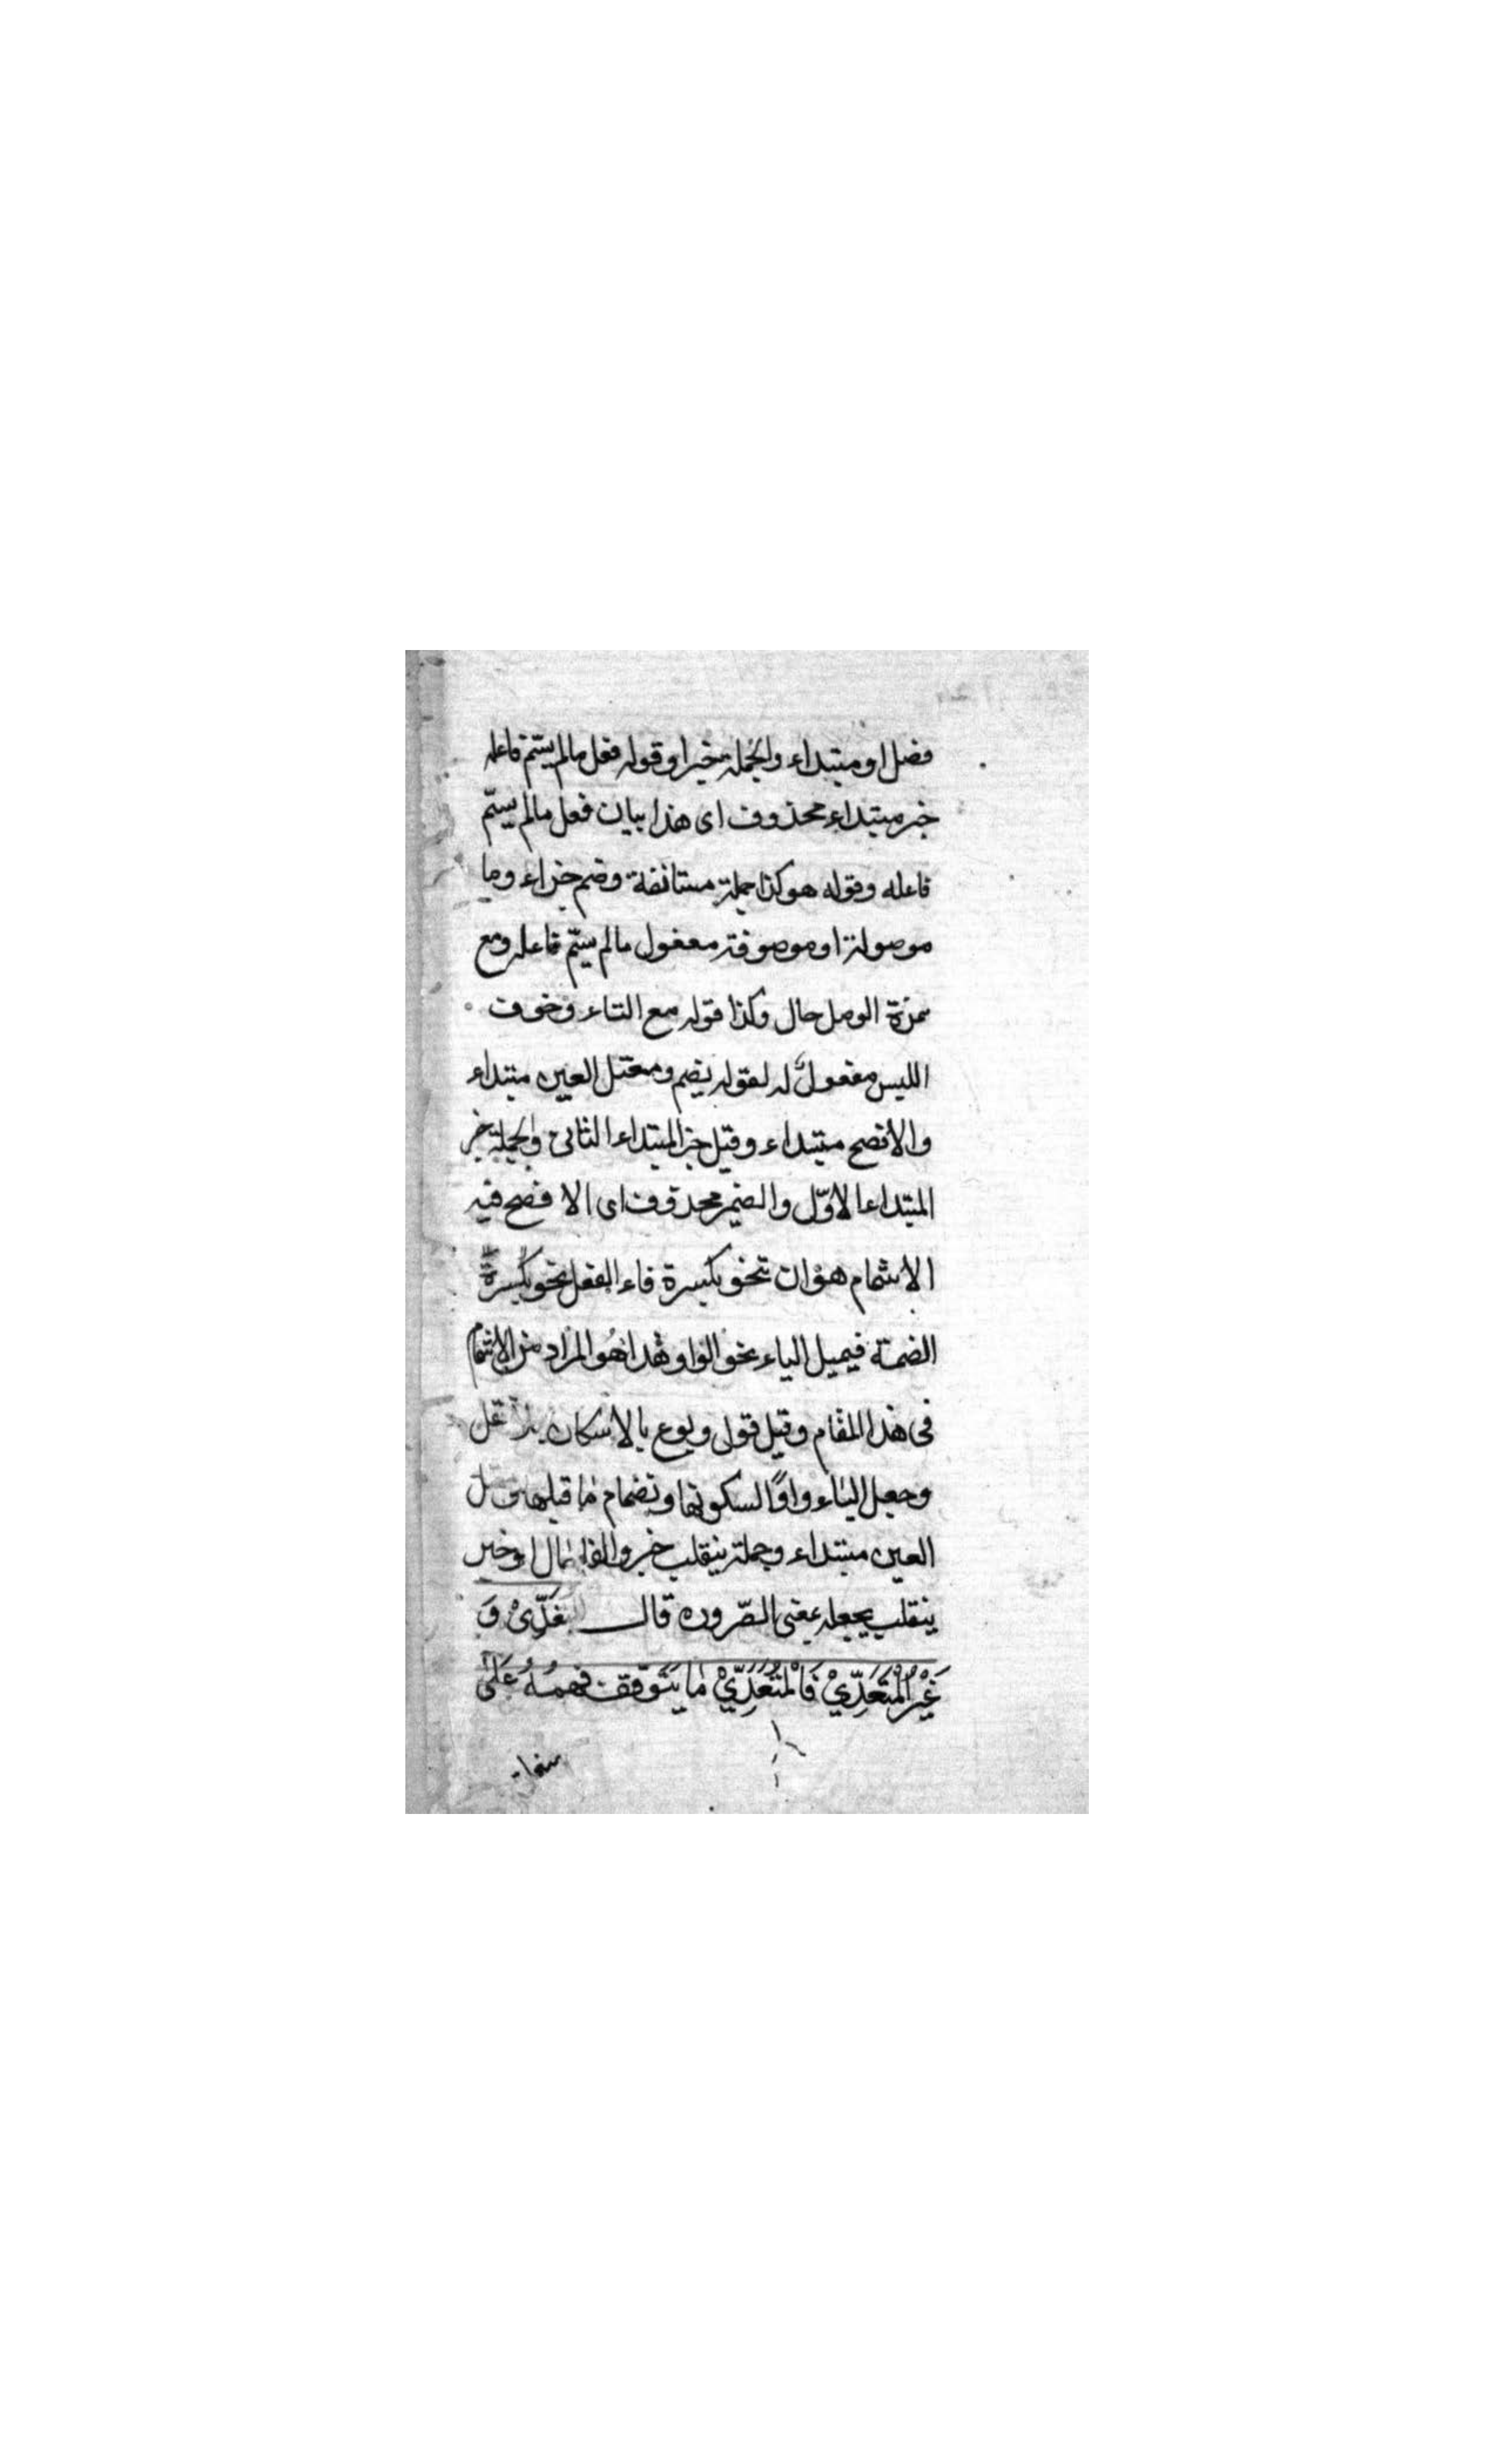 فصل او مبتداء والجملة خبر او قوله فعل مالم يسّم فاعله
خبر مبتداء محذوف اى هذا بيان فعل مالم يسمّ
فاعله وقوله هو كذا جملة مستانفة وضم جزاء وما
موصولة او موصوفة معغول مالم يسمّ فاعله ومع
همزة الوصل حال وكذا قوله مع التاء وخوف
الليس مفعول له لقوله يضم ومعتل العين مبتداء
والافصح مبتداء وقيل خبر المبتداء الثانى والجملة خبر
المبتداء الاوّل والضمير محذوف اى الافصح فيه
الاشمام هو ان تنحو بكسرة فاء الفعل نحو بكسرة
الضمة فيميل الياء نحو الواو هذا هو المراد من الاشمام
فى هذا المقام وقيل قول وبوع بالاسكان بلا نقل
وجعل الياء واوًا لسكونها وتضمام ما قبلها
العين مبتداء وجملة ينقلب خبر والفا حال او خبر
ينقلب بجعله بمعنى الصّروره قال المتعَدِّىْ وَ
غَيْرُ الْمُتَعَدِّيْ فَالْمُتَعَدِّيْ مٰا يَتَوَقّف فهمُهُ عَلىٰ